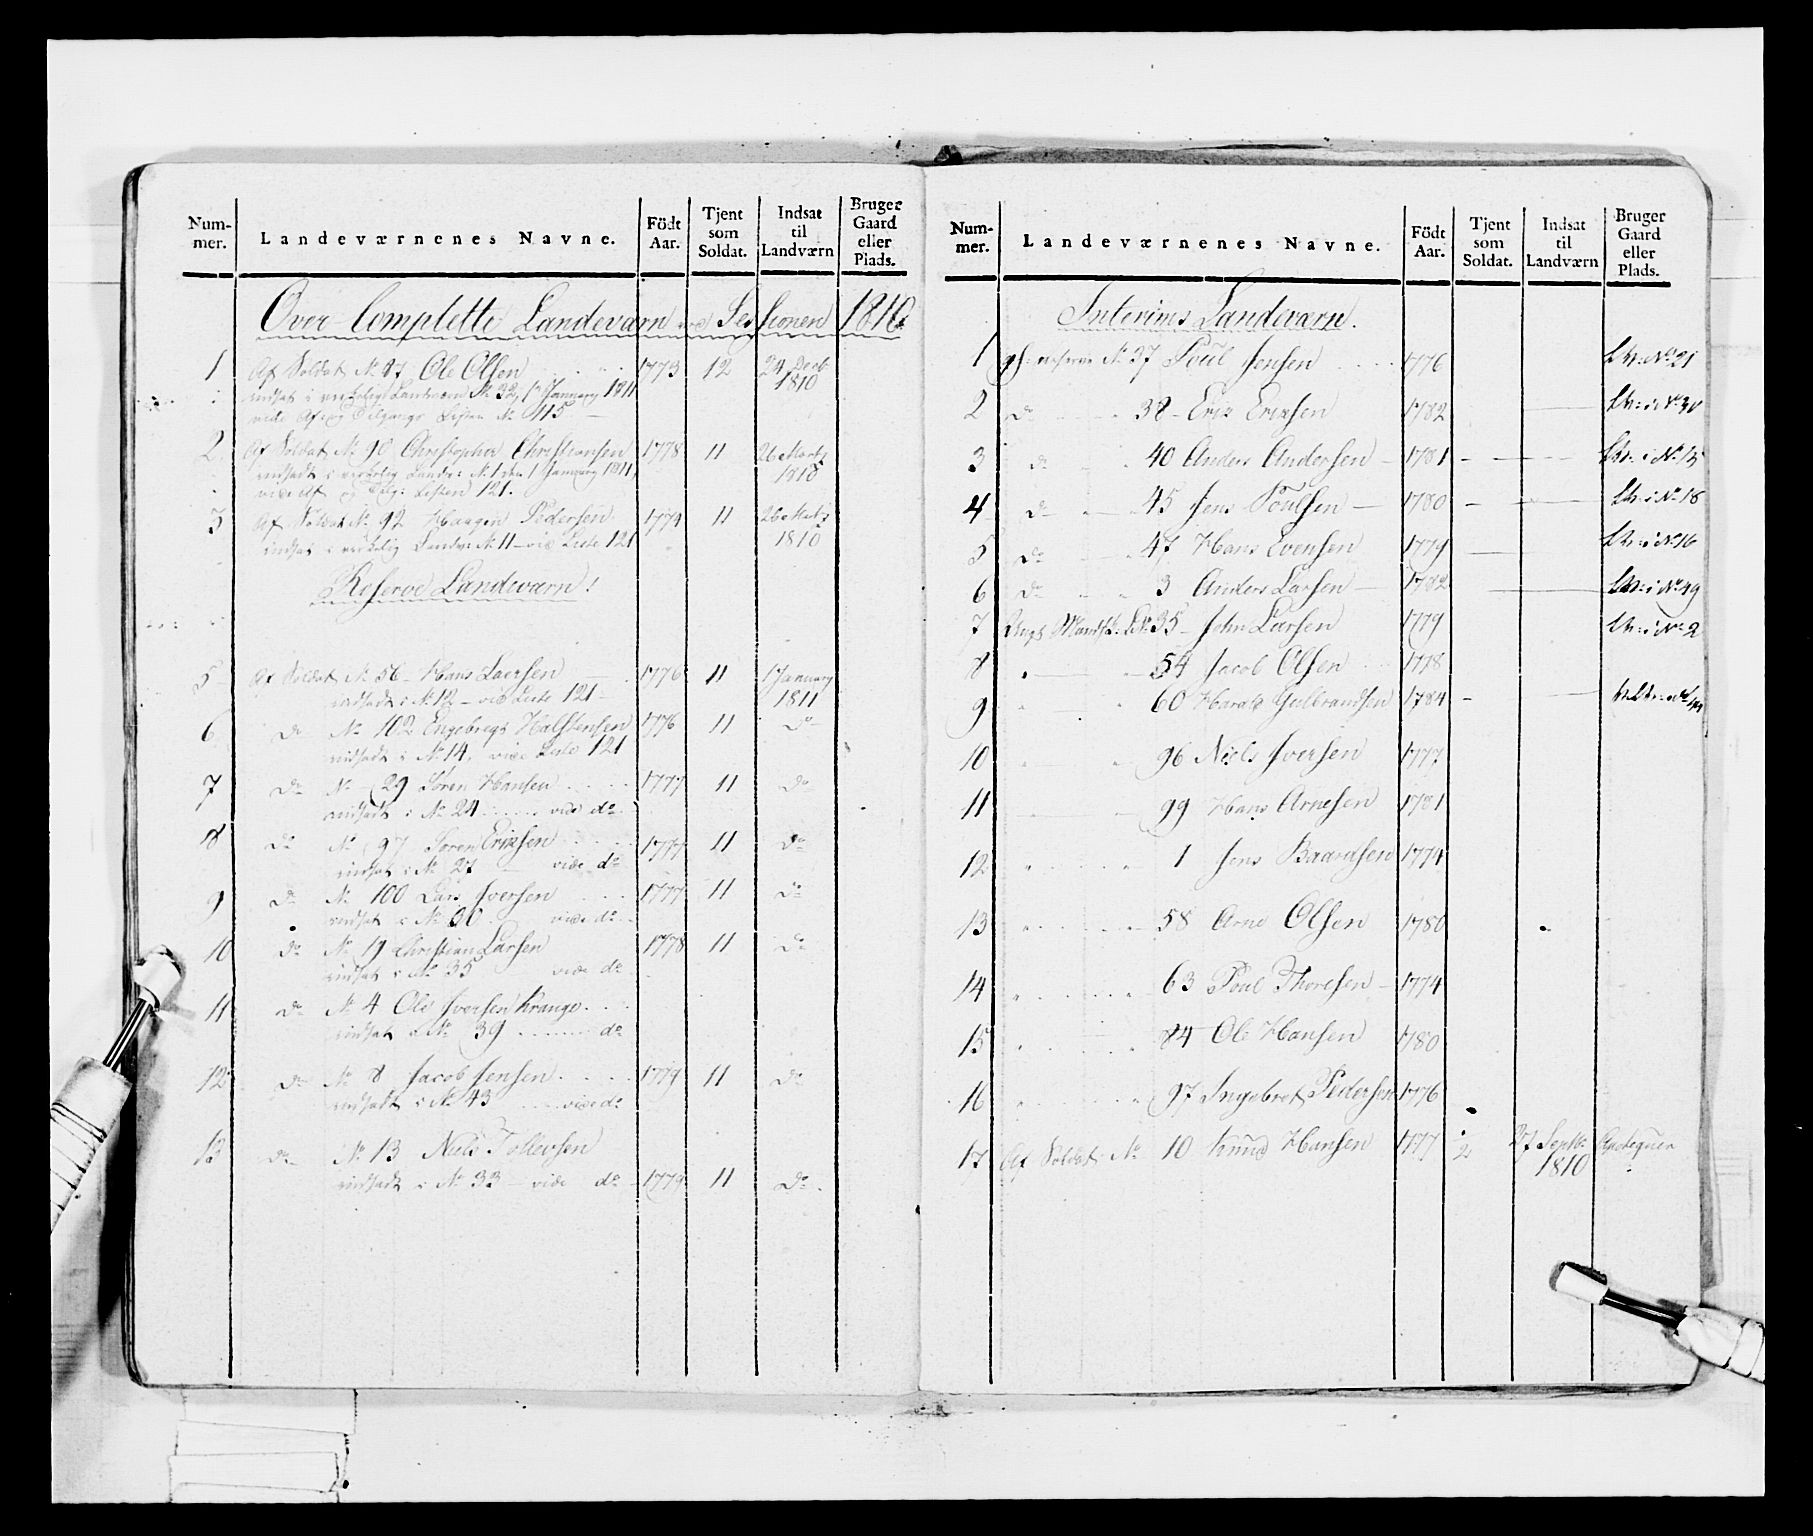 Num-
mer.
Landeværnenes Navne.
Födt
Aar.
Tjent
som
Soldat.
Indsat
til
Landværn
Bruger
Gaard
eller
Plads.
Over Complette Landeværn ved Sessionen 1810
1 Af Soldat № 87 Ole Olsen 1773 12 24 Decb
indsat i virkelig Landværn № 32, 1 January 1811 1810
vide Af og Tilgangs Listen № 115
2 Af Soldat № 90 Christopher Christiansen 1778 11 26 Marts
indsadt i virkelig Landv: № 1 den 1 January 1811, 1810
vide Af og Tilg: Listen 121.
3 Af Soldat № 92 Haagen Pedersen 1774 11 26 Marts
indsat i virkelig Landv: № 11 vid Liste 121 1810
Reserve Landeværn!
5 Af Soldat № 56 Hans Larsen 1776 11 1 January
indsadt i № 12 vid Liste 121 1811
6 do № 102 Engebregt Halstensen 1776 11 do
indsadt i № 14, vide Liste 121
7 do № 29 Søren Hansen 1777 11 do
indsadt i № 24 vide do
8 do № 97 Søren Ericsen 1777 11 do
indsat i № 27 vide do
9 do № 100 Lars Iversen 1777 11 do
indsat i № 30 vide do
10 do № 19 Christian Larsen 1778 11 do
indsat i № 35 vide do
11 do № 4 Ole Iversen Krange
indsat i № 39 do
12 do № 8 Jacob Jensen 1779 11 do
indsadt i № 43 vide do
13 do № 13 Niels Tollevsen
indsadt i № 33 vide do 1779 11 do
Num-
mer.
Landeværnenes Navne.
Födt
Aar.
Tjent
som
Soldat.
Indsat
til
Landværn
Bruger
Gaard
eller
Plads.
Interims Landeværn.
1 № 37 Poul Jensen 1776 № 21
2 do 38 Eric Ericsen 1782
3 do 40 Anders Andersen 1781 i № 15
4 do 45 Jens Poulsen 1780 i № 18
5 do 47 Hans Evensen 1779 i № 16
6 do 3 Anders Larsen 1782 i № 49
7 35 John Larsen 1779 i № 2
8 54 Jacob Olsen 1778
9 60 Harald Gulbrandsen 1784
10 96 Niels Iversen 1777
11 99 Hans Arnesen 1781
12 1 Jens Baardsen 1774
13 58 Arne Olsen 1780
14 63 Poul Thoresen 1774
15 84 Ole Hansen 1780
16 97 Ingebret Pedersen 1776
17 Af Soldat № 10 Knud Hansen 1777 2 27 Septbr
1810